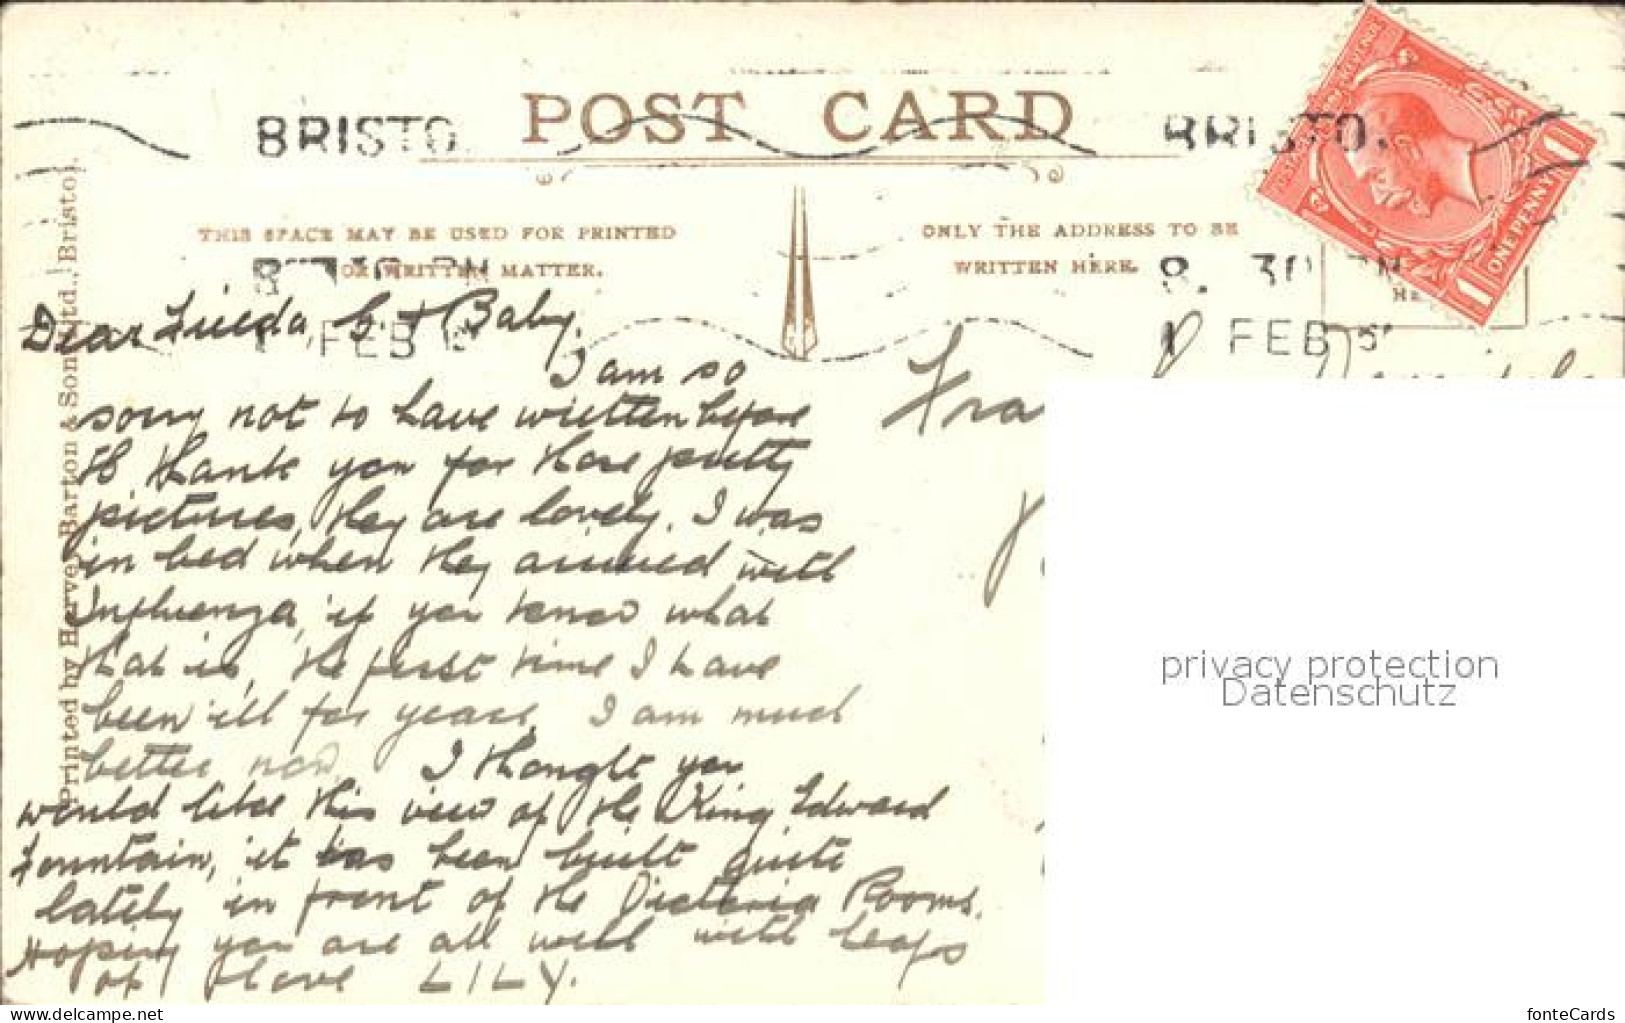 POST CARD
BRISTO
BRISTO
THIS SPACE MAY BE USED FOR PRINTED
OR WRITTEN MATTER.
ONLY THE ADDRESS TO BE
WRITTEN HERE.
8. 30 PM
1 FEB
8. 30 PM
1 FEB
ONE PENNY
1
1
Printed by Harvey Barton & Son Ltd., Bristol.
Dear Frieda, G. & Baby,
I am so
sorry not to have written before
to thank you for those pretty
pictures, they are lovely. I was
in bed when they arrived with
Influenza, if you know what
that is, the first time I have
been ill for years. I am much
better now. I thought you
would like this view of the King Edward
Fountain, it has been built quite
lately in front of the Victoria Rooms.
Hoping you are all well with heaps
of love LILY.
Fra
privacy protection
Datenschutz
www.delcampe.net
fonteCards